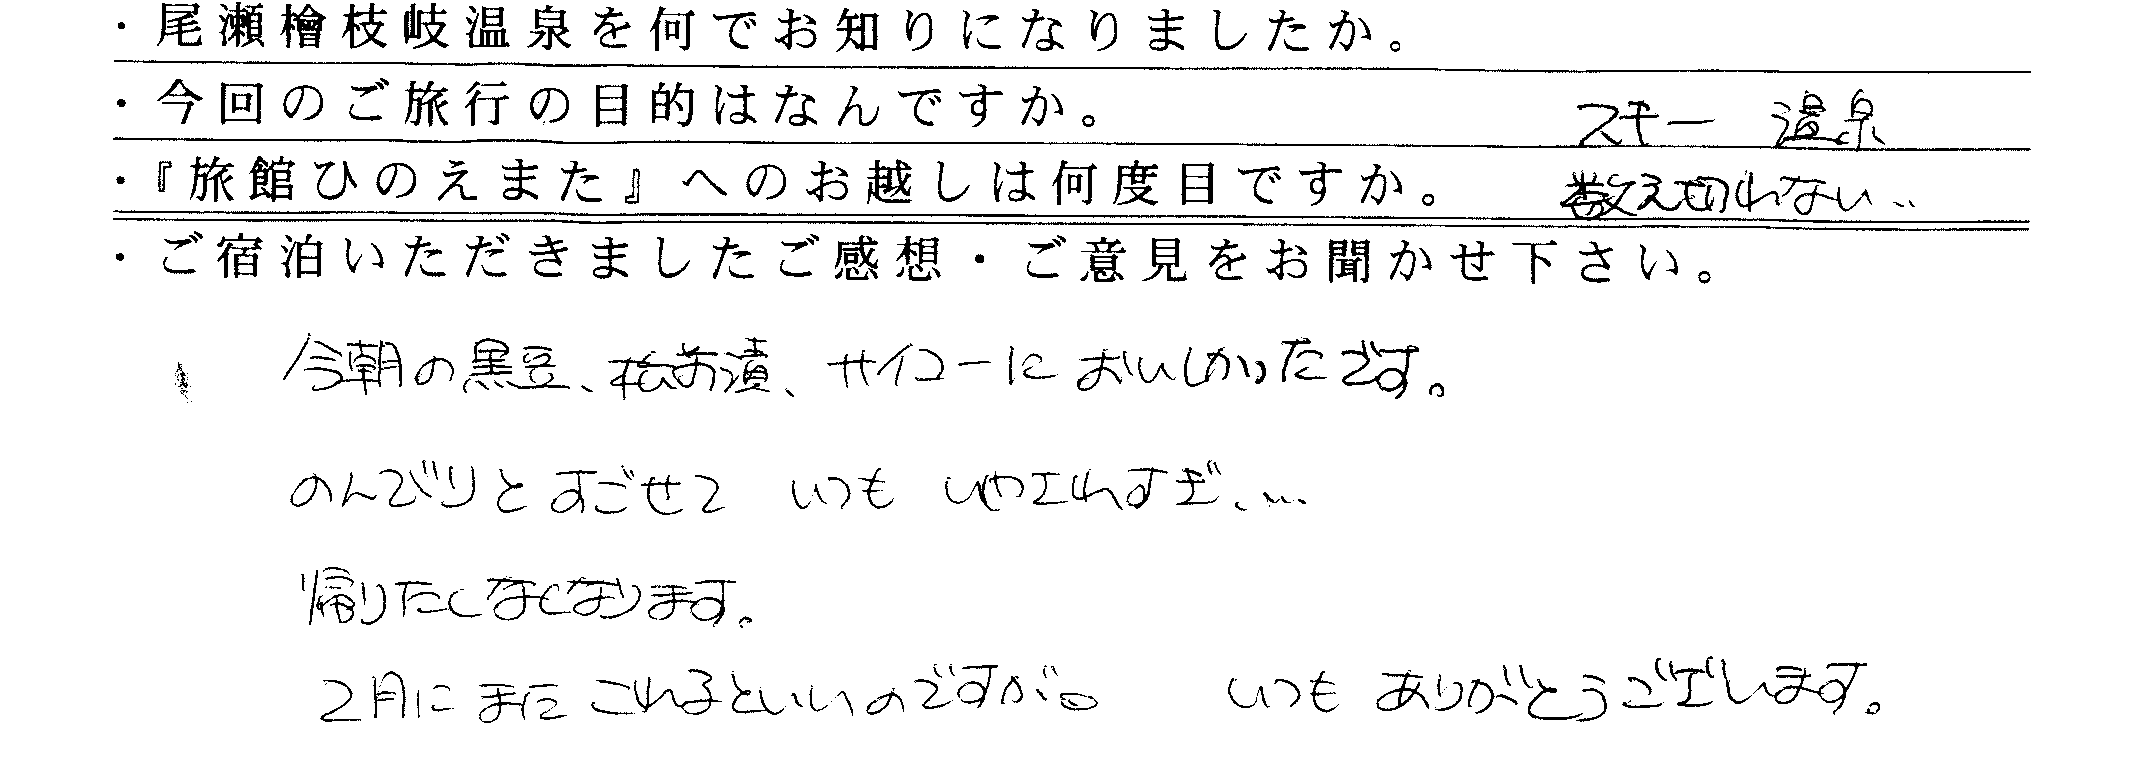 ・尾瀬檜枝岐温泉を何でお知りになりましたか。
・今回のご旅行の目的はなんですか。 スキー 温泉
・『旅館ひのえまた』へのお越しは何度目ですか。 数え切れない..
・ご宿泊いただきましたご感想・ご意見をお聞かせ下さい。
今朝の黒豆、松前漬、サイコーにおいしかったです。
のんびりとすごせて いつも いやされすぎ、…
帰りたくなくなります。
2月にまたこれるといいのですが。 いつも ありがとうございます。